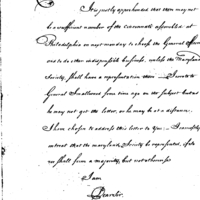 It is justly apprehended that there may not
be a sufficient number of the cincinnati assembled at
Philadelphia on next monday to chuse the General Officers
and to do other indispensible business, unless the Maryland
Society, shall have a representation there — I wrote to
General Smallwood some time ago on the subject but as
he may not get the letter, or he may be at a distance,
I have chosen to address this letter to you — I earnestly
intreat that the maryland Society be represented, if
we shall form a majority, but not otherwise
I am
Dear Sir